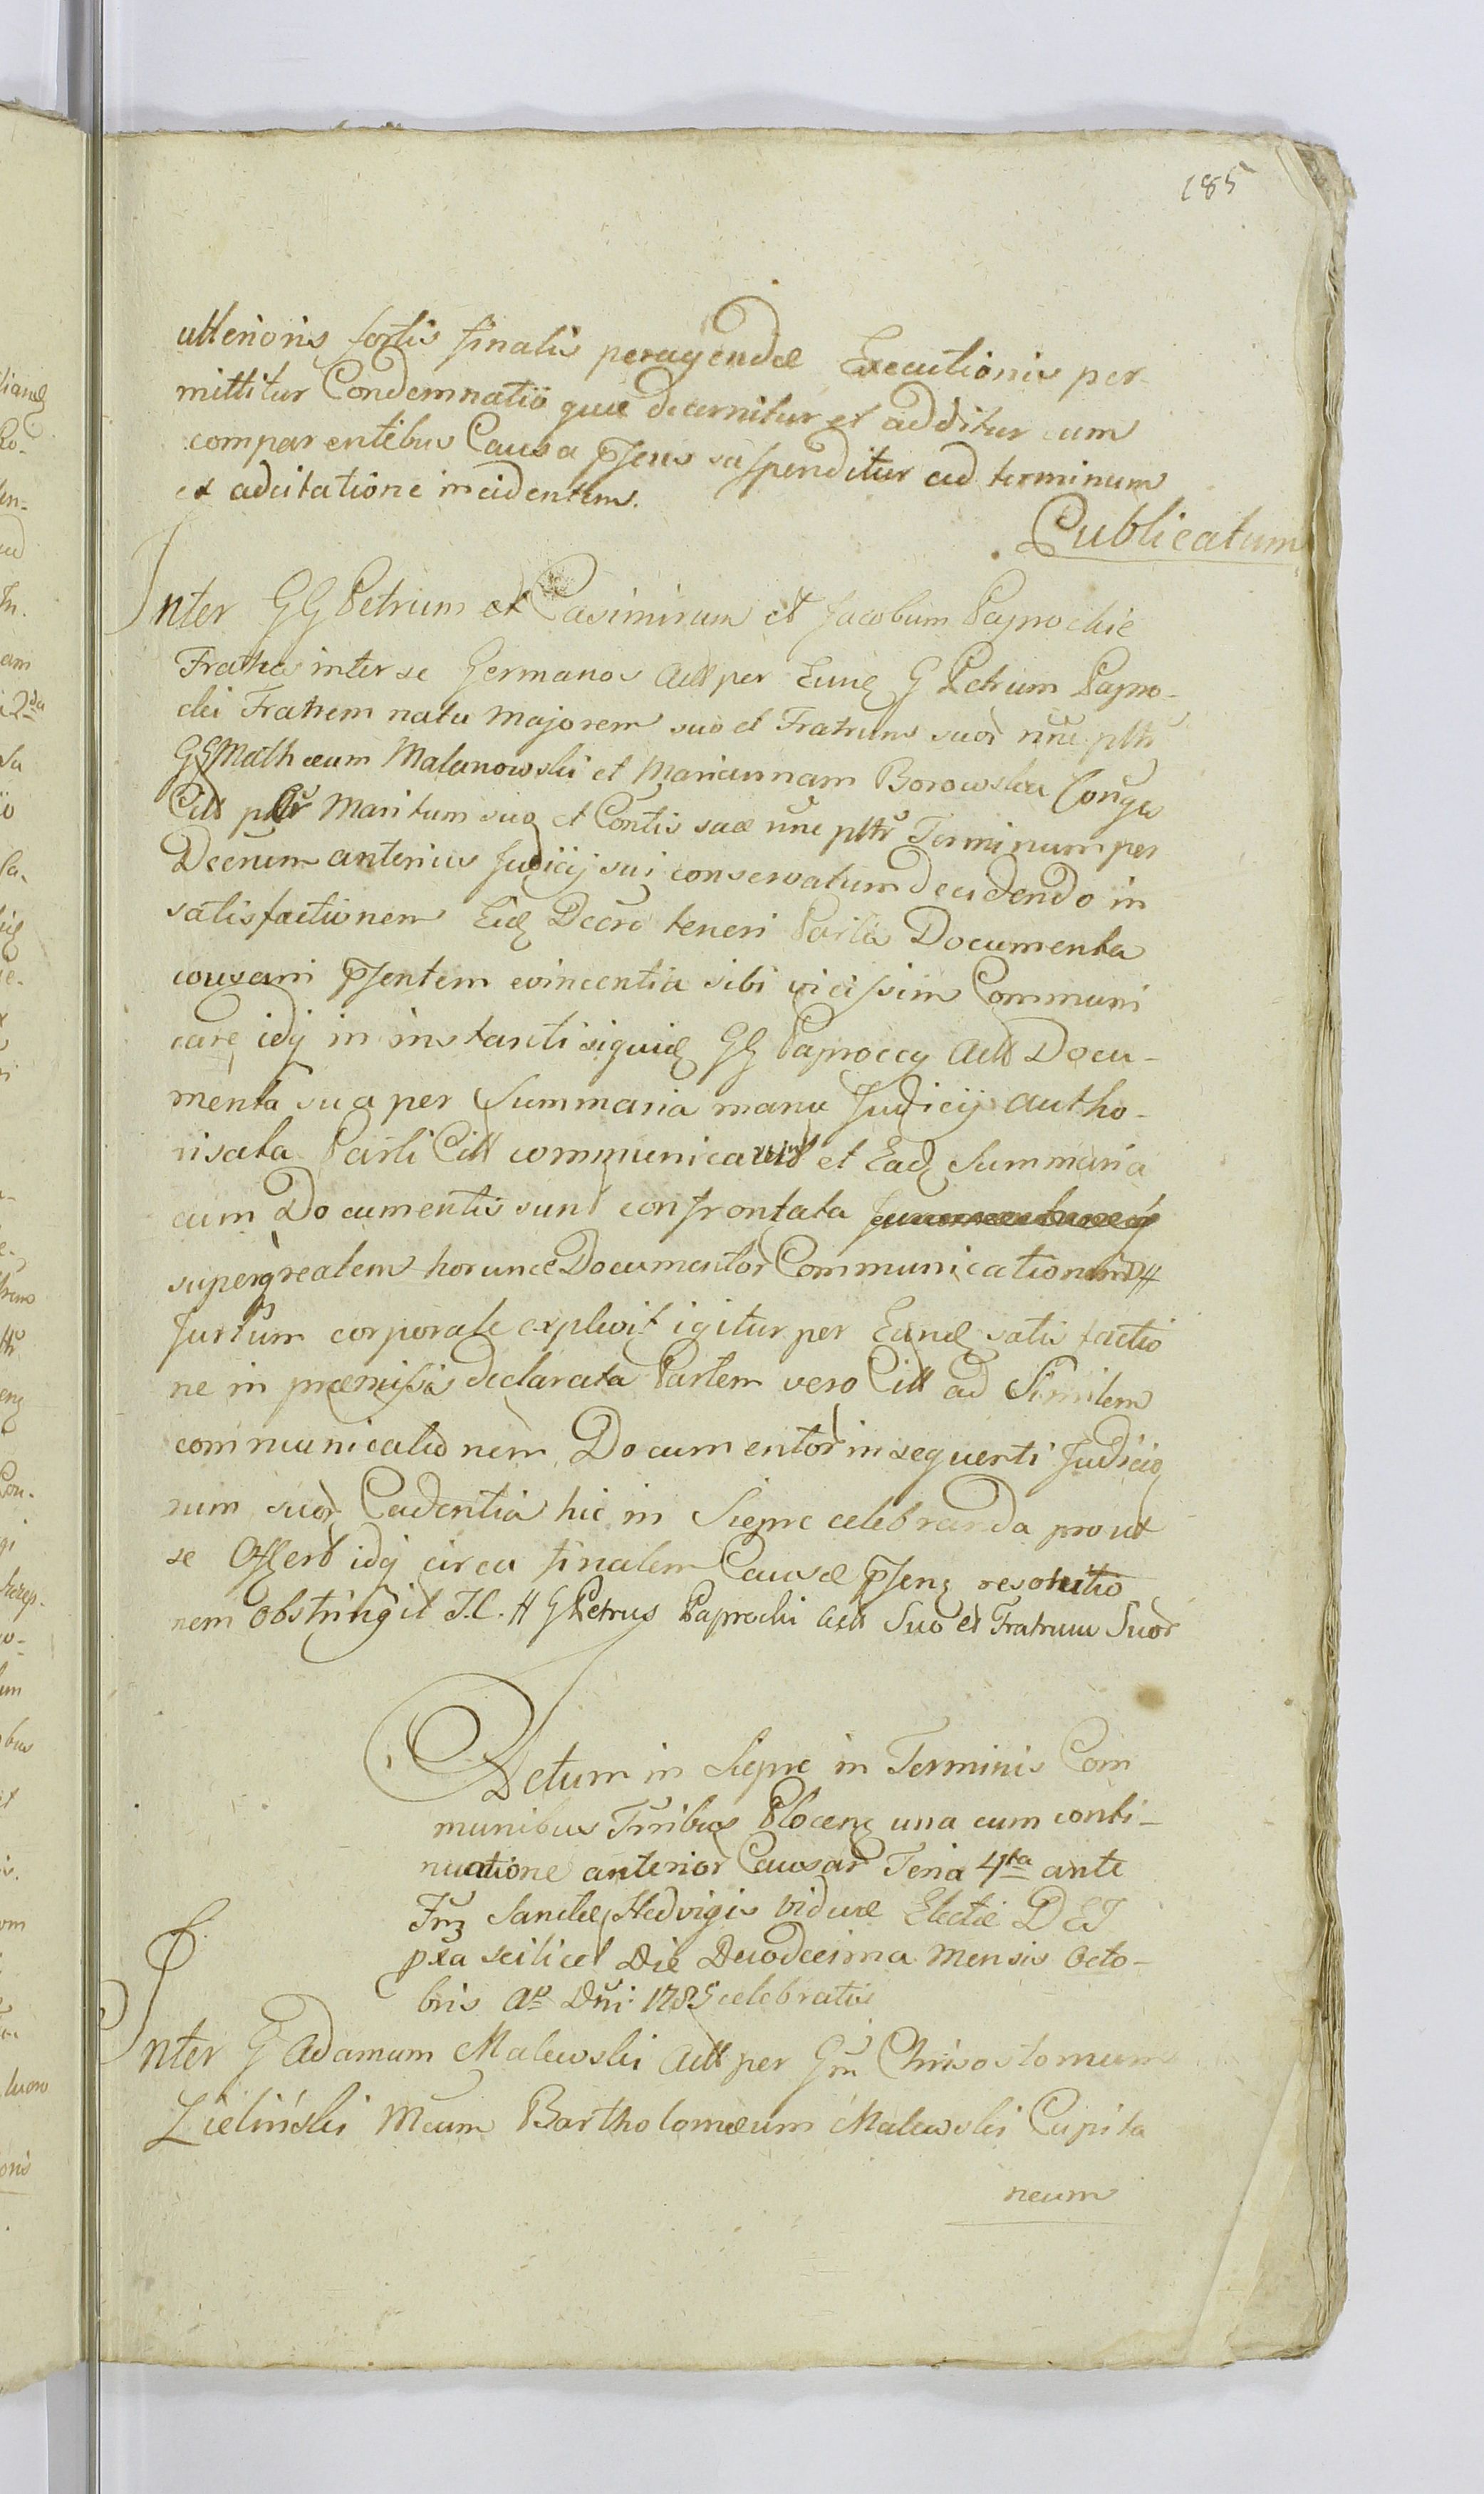 185
ulterioris sortis finalis peragendæ Executionis per-
mittitur Condemnatio quæ decernitur et additur cum
comparentibus Causa pſens suſpenditur ad terminum
ex adcitatione incidentem.
Publicatum
Inter GG Petrum et Casimirum et Jacobum Paprockie
Fratres inter se Germanos Actt per Eund G Petrum Papro-
cki Fratrem natu majorem suo et Fratrum suor nne pltr
GG Mathæum Malanowski et Mariannam Borowska Conges
Citt pltr Maritum suo et Contis suæ nne pltr Terminum per
Decrum anterius Judicij sui conservatum decidendo in
satisfactionem Eid Decro teneri Partes Documenta
causam pſentem evincentia sibi viciſsim Communi
care idq in instanti siquid GG Paproccy Actt Docu-
menta sua per Summaria manu Judicij autho-
risata Parti Citt communicarunt et Ead Summaria
cum Documentis sunt confrontata
super realem horunce Documentor Communicationem #
Jurtum corporale explevit igitur per Eund satisfactio
ne in præmiſsis declarata Partem vero Citt ad Similem
communicationem Documentor in sequenti Judicio
rum suor Cadentia hic in Siepre celebranda prout
se Offert idq circa finalem Causæ pſeng resolutio
nem obstringit J.C. # G Petrus Paprocki Actt Suo et Fratrum Suor
Actum in Siepre in Terminis Com
munibus Trribus Plocens una cum conti-
nuatione anterior Causar Feria 4ta ante
Frz Sanctæ Hedvigis viduæ Electæ DEI
pxa scilicet Die Duodecima Mensis Octo-
bris Ao Dni: 1785 celebratis
Inter G Adamum Malewski Actt per Gm Chrisostomum
Zieliński Mcum Bartholomæum Malewski Capita
neum